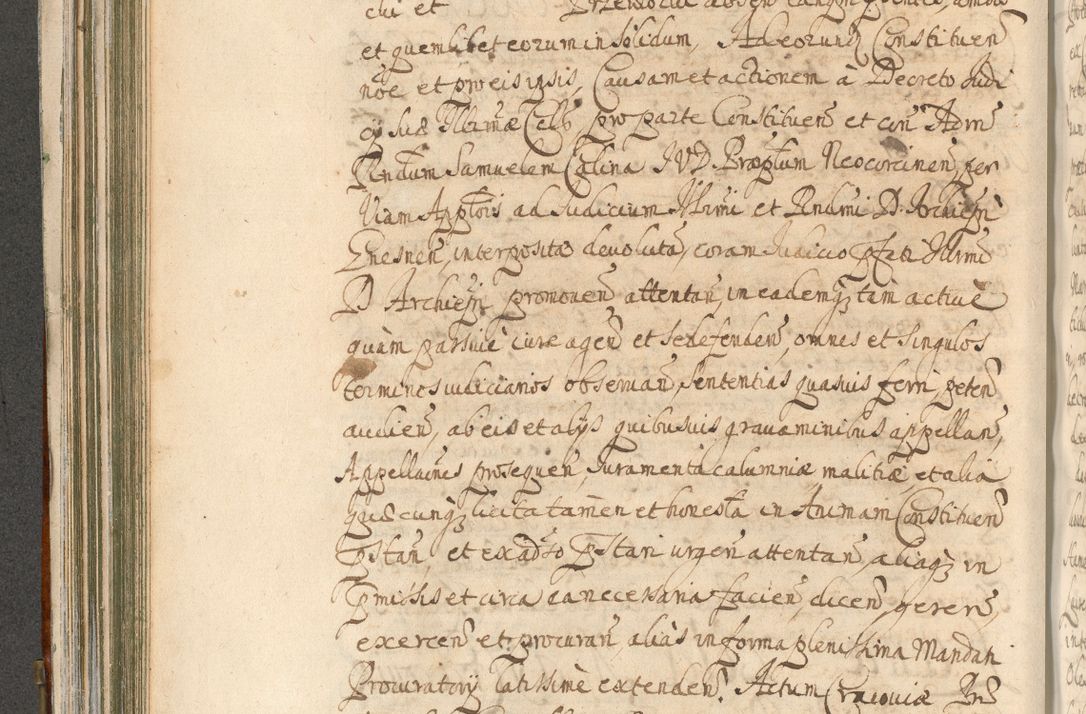 et quemlibet eorum in Solidum, Ad eorundẽ Constituen̄
nõe et pro eis ipsis, Causam et actionem à Decreto Judi
cij Suæ Illrimæ Celb pro parte Constituen̄ et con̄ Adm̄
Rndum Samuelem Czalina JVD. Præptum Neocorcinen̄, per
Viam Appltõis ad Judicium Illrmi et Rndmi D. Archiep̃i
Gnesnen̄, interposita devoluta, coram Judicio pfati Illrmi
D Archiep̃i promoven̄ attentan̄, in eademqz tàm activè
quàm passivè iure agen̄ et se defenden̄, omnes et singulos
terminos iudiciarios observan̄, Sententias quasvis ferri, peten̄
audien̄, ab eis et alijs quibusvis gravaminibus appellan̄,
Appellaões prosequen̄, Juramenta calumniæ, malitiæ, et alia
quæcunqz licita tamen et honesta in Animam Constituen̄
Pstan̄ et ex adso Pstari urgen̄ attentan̄, aliaqz in
Pmissis et circa ea necessaria facien̄, dicen̄, geren̄
exercen̄ et procuran̄, aliàs in forma plenissima Mandati
Procuratorij latissimè extenden̄. Actum Cracoviæ Pn̄s